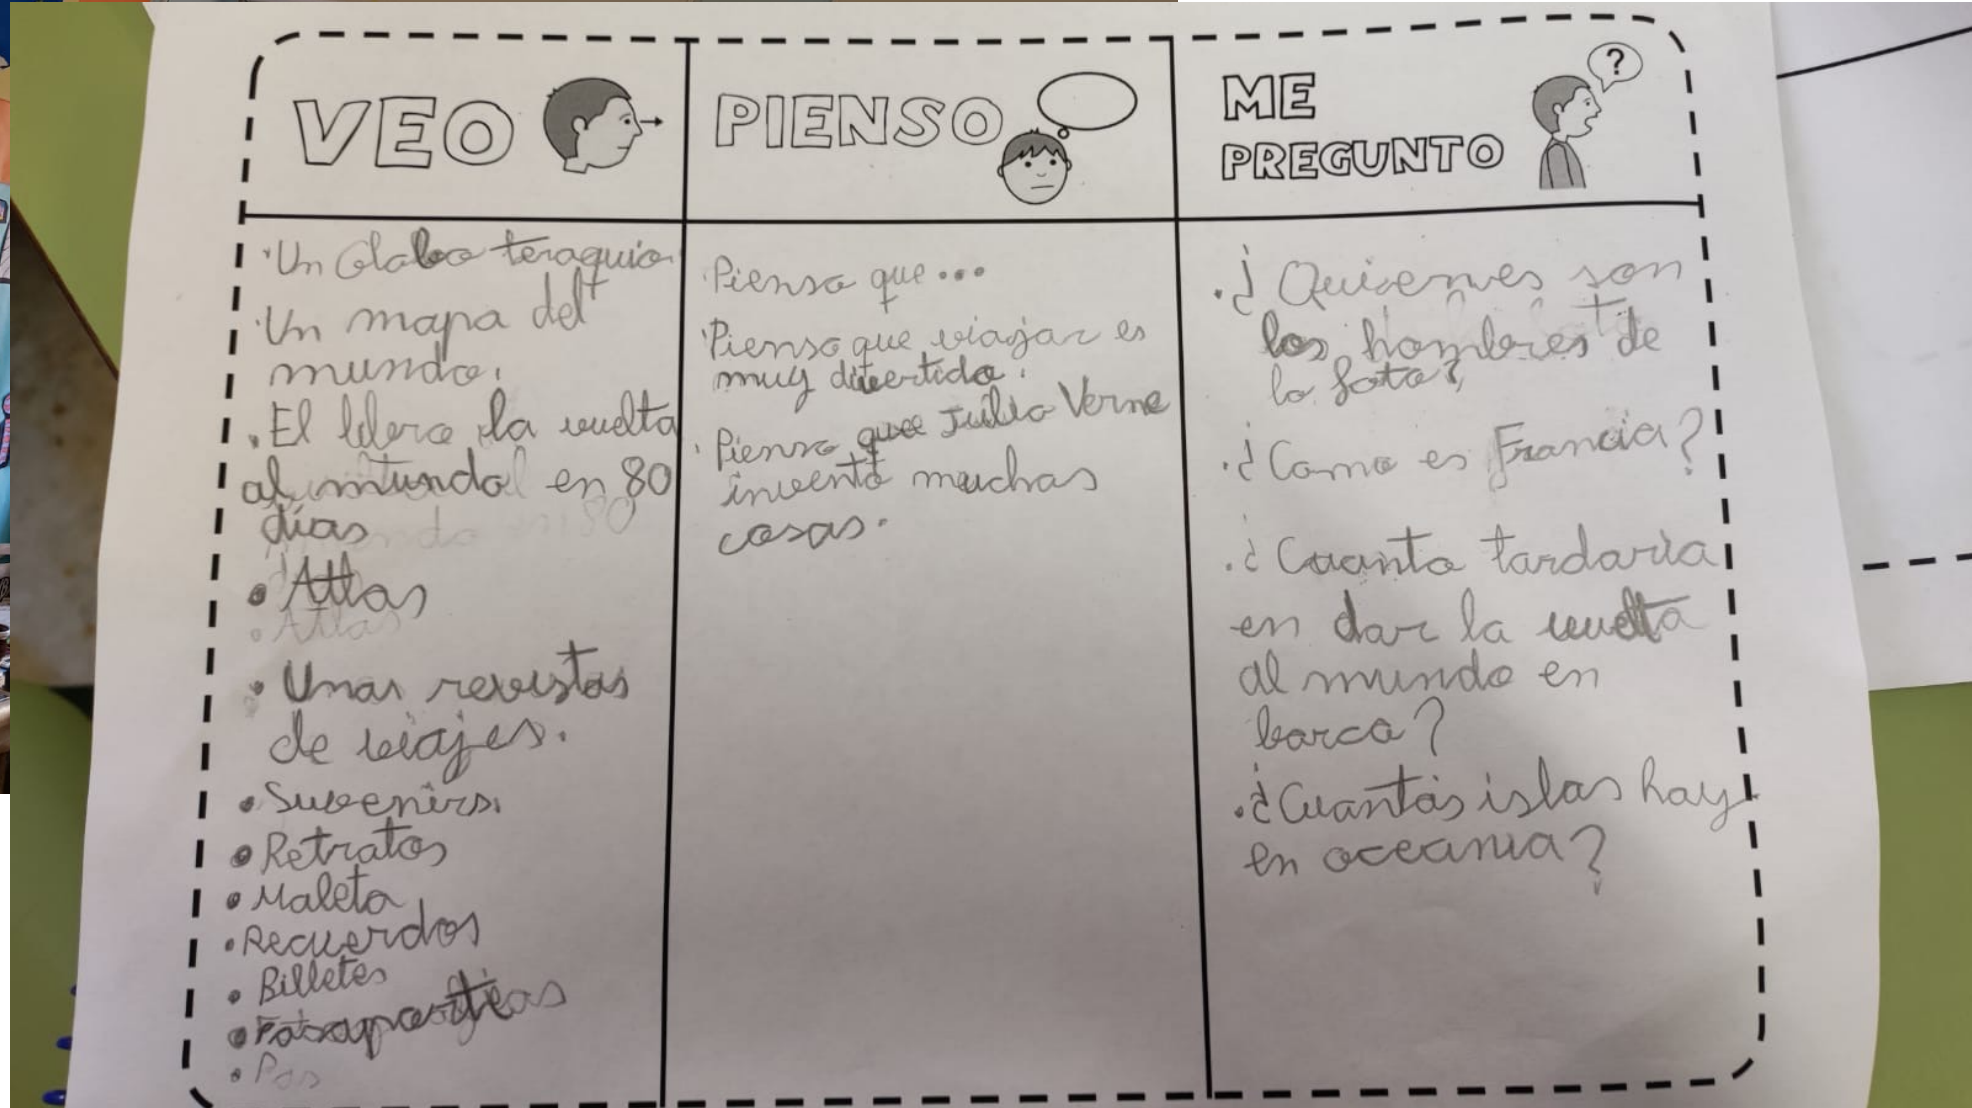 VEO
·Un Globo teraquio.
·Un mapa del
mundo.
·El libro la vuelta
al mundo en 80
días
• Atlas
• Atlas
• Unas revistas
de viajes.
• Suvenirs.
• Retratos
• Maleta
• Recuerdos
• Billetes
• Pas
PIENSO
·Pienso que...
·Pienso que viajar es
muy divertido.
·Pienso que Julio Verne
inventó muchas
cosas.
ME
PREGUNTO
?
·¿Quienes son
los hombres de
la foto?
·¿Como es Francia?
·¿Cuanto tardaria
en dar la vuelta
al mundo en
barco?
·¿Cuantas islas hay
en oceania?